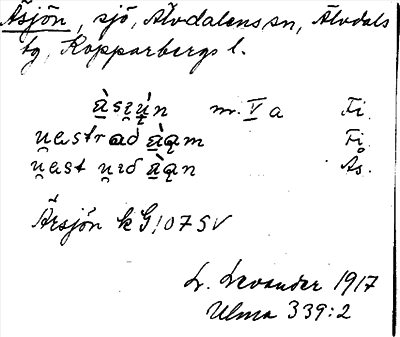 Åsjön, sjö, Älvdalens sn, Älvdals
tg, Kopparbergs l.
àsı̯ų́n m. V a Fi
u̯æstrađ àąm Fi
u̯æst u̯ıđ àąn Ås.
Åsjön kG!07SV
L. Levander 1917
Ulma 339:2